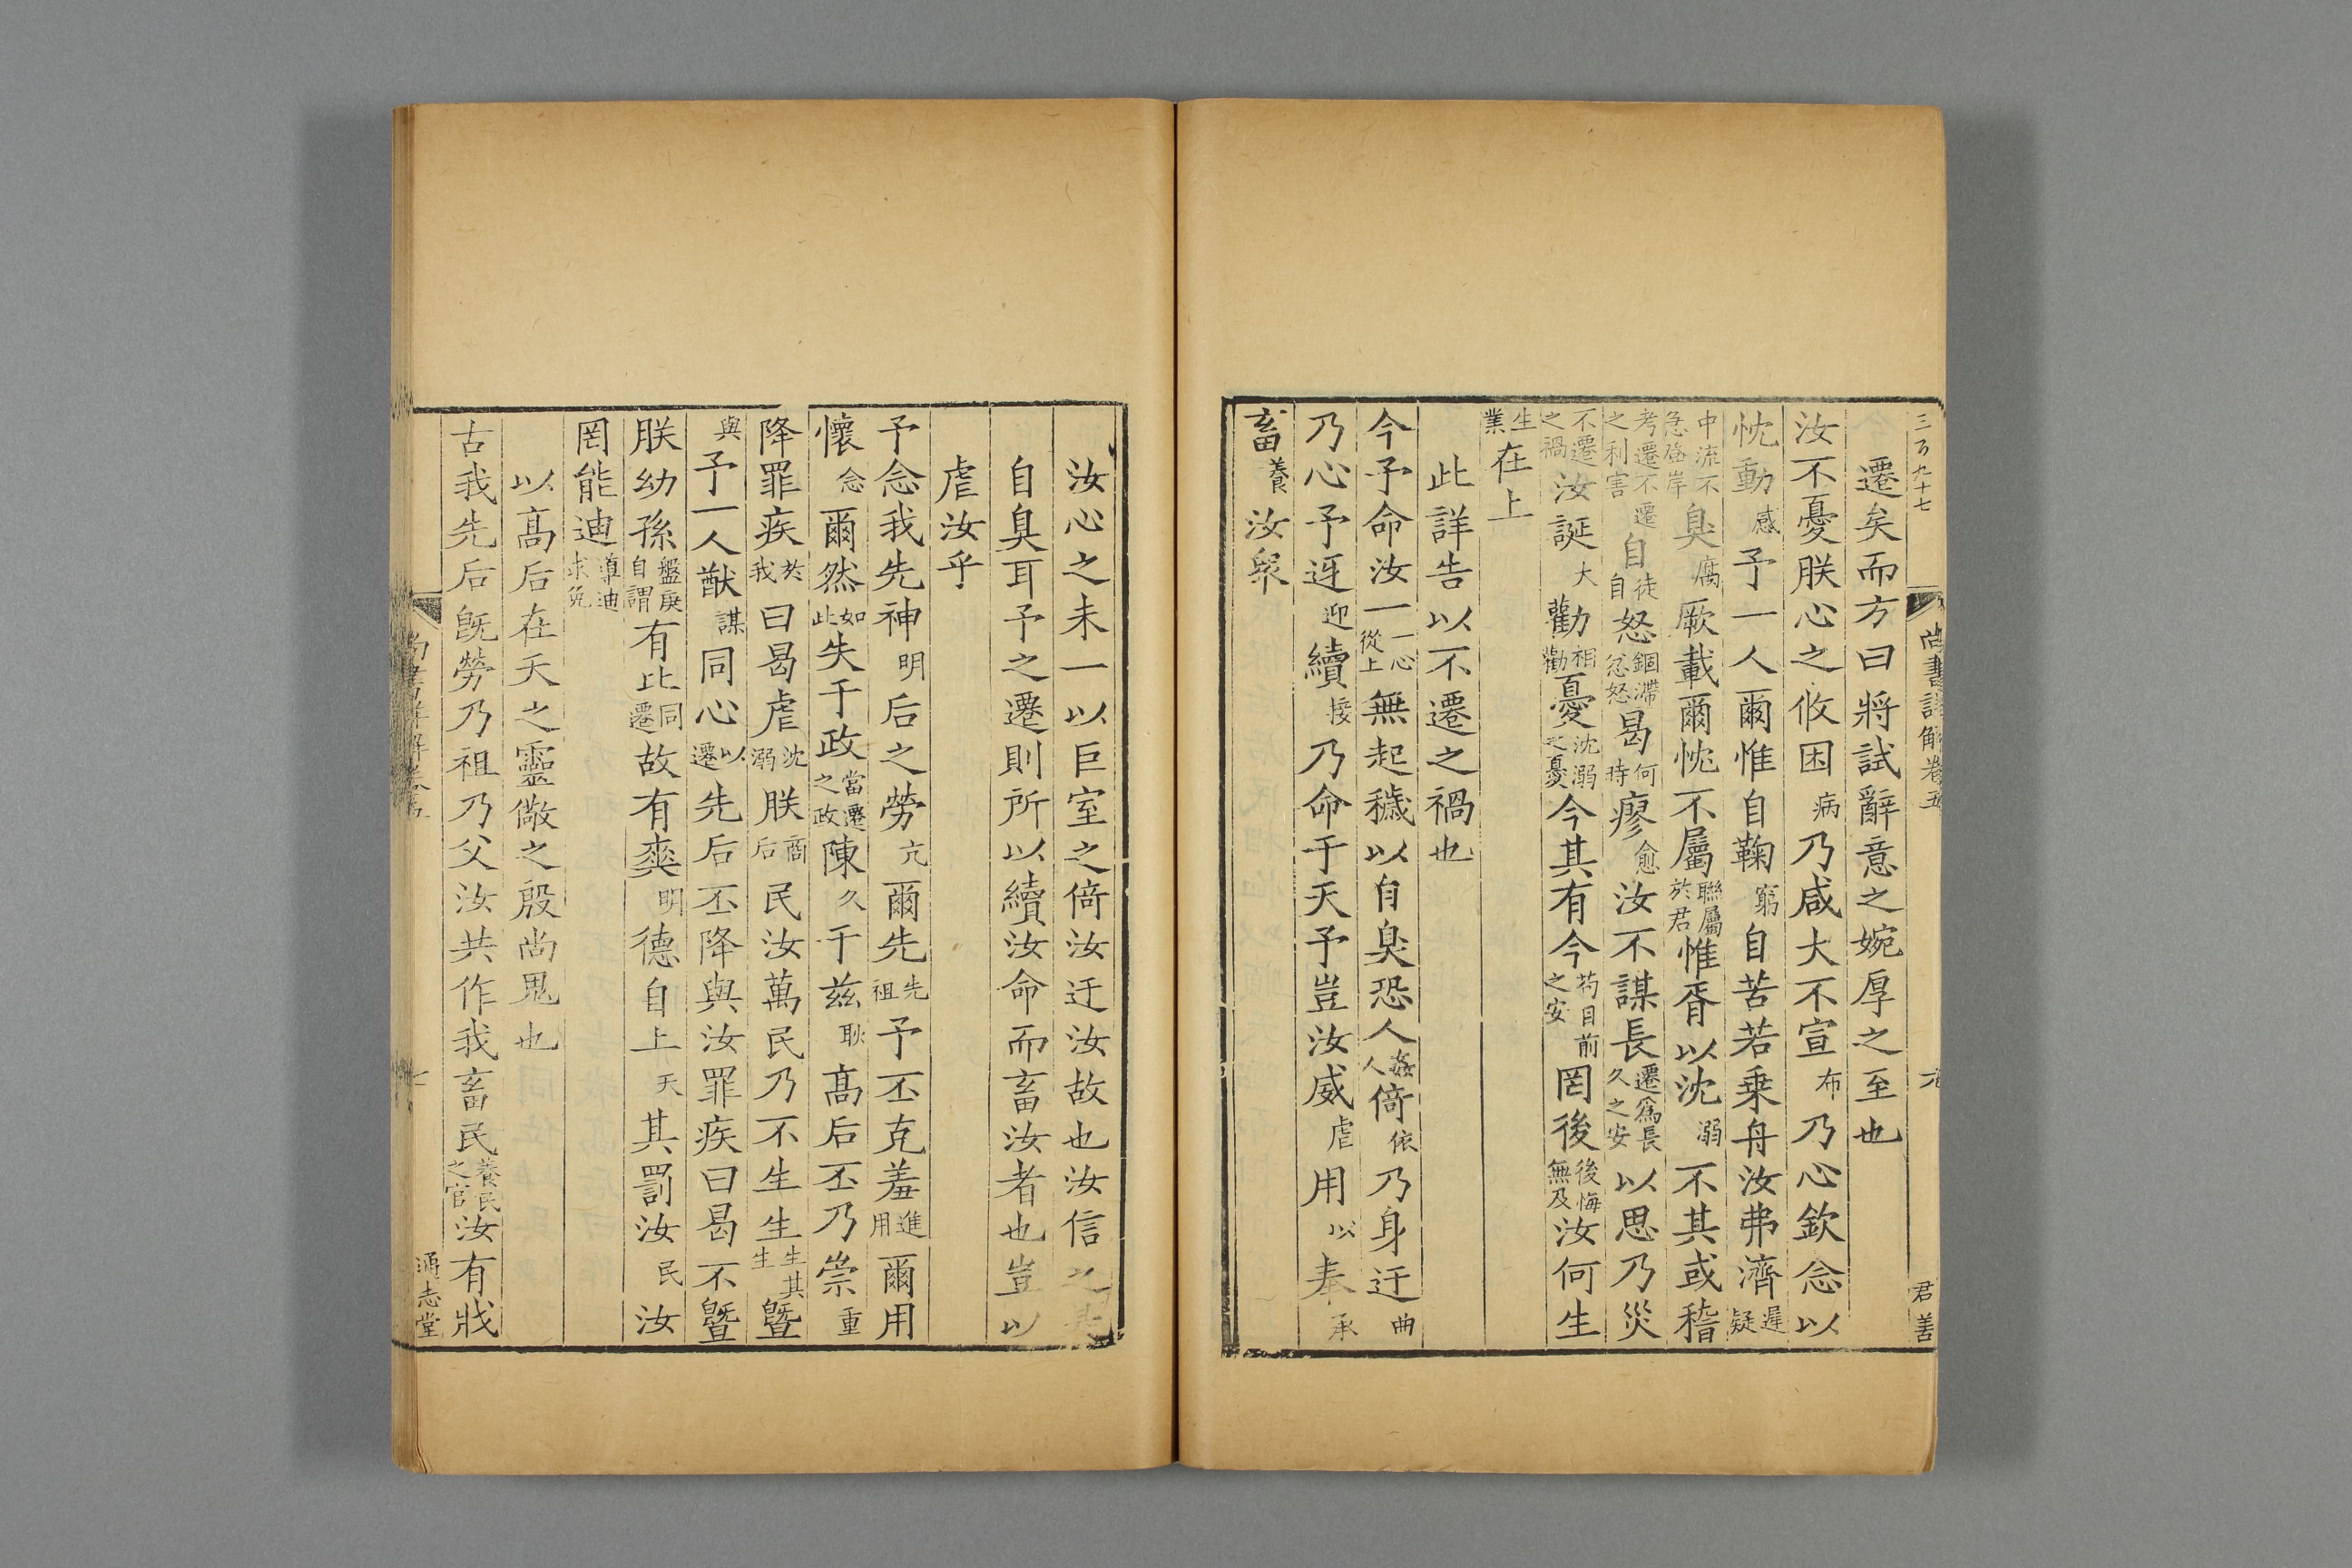 三百九十七 尚書詳解卷五 君善
遷矣而方曰將試辭意之婉厚之至也
汝不憂朕心之攸困病乃咸大不宣布乃心欽念以
忱動感予一人爾惟自鞠窮自苦若乗舟汝弗濟遲疑
中流不急啓岸臭腐厥載爾忱不屬聯屬於君惟胥以沈溺不其或稽
考遷不遷之利害自徒自怒錮滯忿怒曷何時瘳愈汝不謀長遷爲長久之安以思乃災
不遷之禍汝誕大勸相勸憂沈溺之憂今其有今苟目前之安罔後後悔無及汝何生
生業在上
此詳告以不遷之禍也
今予命汝一一心從上無起穢以自臭恐人姦人倚依乃身迂曲
乃心予迓迎續接乃命于天予豈汝威虐用以奉承
畜養汝眾
汝心之未一以巨室之倚汝迂汝故也汝信之
自臭耳予之遷則所以續汝命而畜汝者也豈以
虐汝乎
予念我先神明后之勞亢爾先先祖予丕克羞進用爾用
懷念爾然如此失于政當遷之政陳久于茲耿高后丕乃崇重
降罪疾於我曰曷虐沈溺朕商后民汝萬民乃不生生生其生暨
與予一人猷謀同心以遷先后丕降與汝罪疾曰曷不暨
朕幼孫盤庚自謂有比同遷故有爽明德自上天其罰汝民汝
罔能迪導迪求免
以高后在天之靈儆之殷尚鬼也
古我先后旣勞乃祖乃父汝共作我畜民養民之官汝有戕
尚書詳解卷五 通志堂